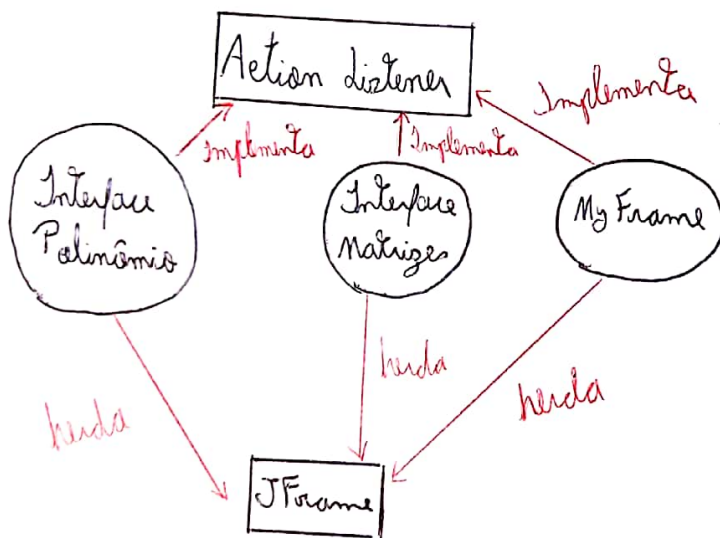 Action Listener
Implementa
Implementa
Implementa
Interface
Polinômio
Interface
Matrizes
My Frame
herda
herda
herda
JFrame